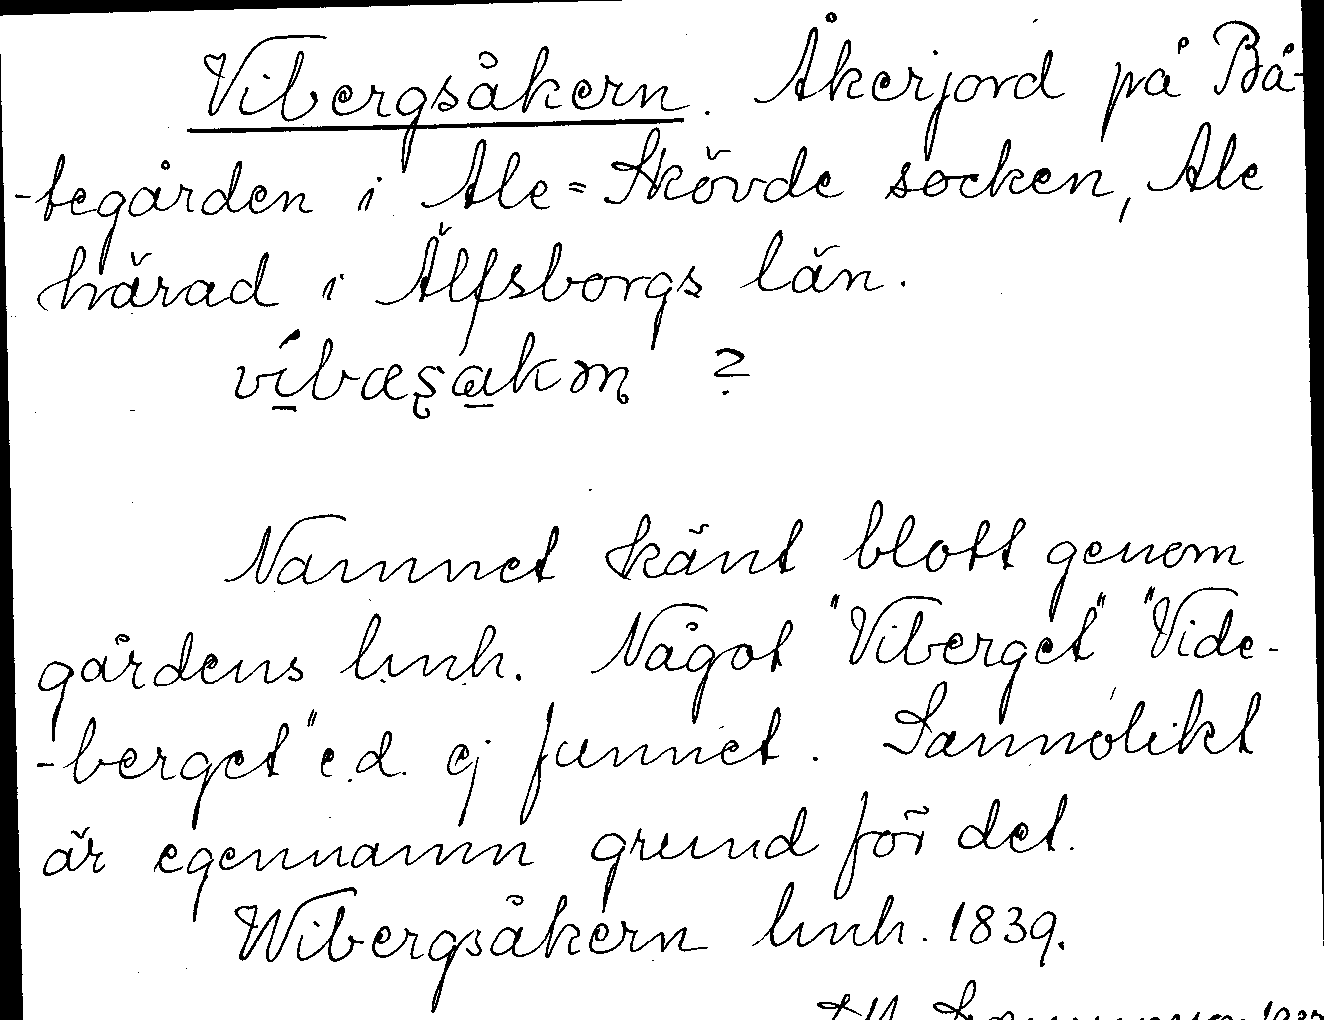 Vibergsåkern. Åkerjord på Bå-
-tegården i Ale=Skövde socken, Ale
härad i Älfsborgs län.
víbæʂakəɳ ?
Namnet känt blott genom
gårdens lmh. Något "Viberget" "Vide-
-berget" e.d. ej funnet. Sannolikt
är egennamn grund för det.
Wibergsåkern lmh. 1839.